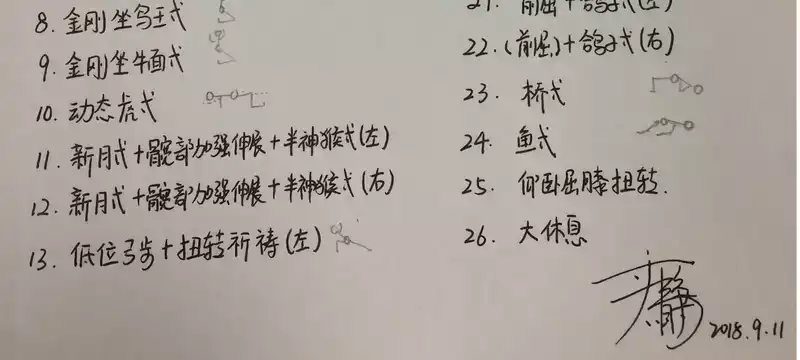 8. 金刚坐鸟王式
9. 金刚坐牛面式
10. 动态虎式
11. 新月式+髋部加强伸展+半神猴式(左)
12. 新月式+髋部加强伸展+半神猴式(右)
13. 低位弓步+扭转祈祷(左)
21. 前屈+鸽子式(左)
22. (前屈)+鸽子式(右)
23. 桥式
24. 鱼式
25. 仰卧屈膝扭转.
26. 大休息
2018.9.11